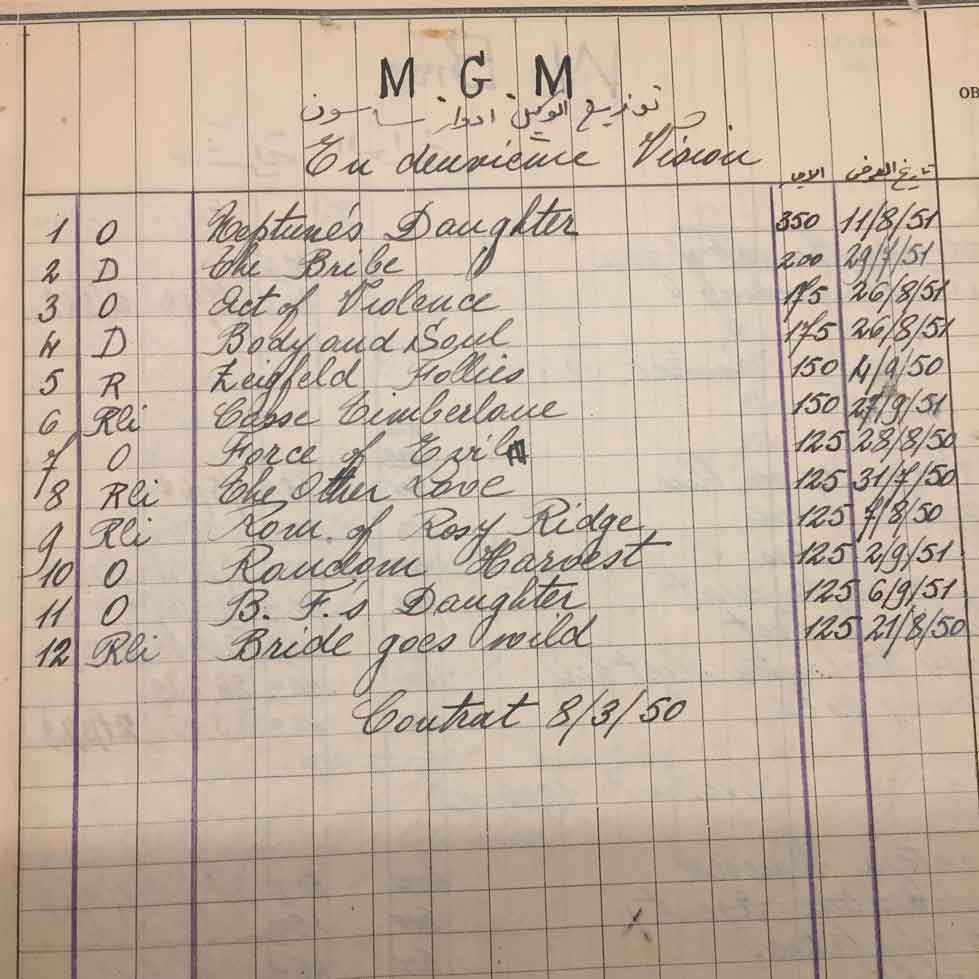 M. G. M
توزيع الوكيل ادوار ساسون
En deuxième Vision
OB
الايجار تاريخ العرض
1 O Neptune's Daughter 350 11/8/51
2 D The Bribe 200 29/7/51
3 O Act of Violence 175 26/8/51
4 D Body and Soul 175 26/8/51
5 R Zeigfeld Follies 150 4/9/50
6 Rli Casse Timberlane 150 27/9/51
7 O Force of Evil 125 28/8/50
8 Rli The Other Love 125 31/7/50
9 Rli Rom. of Rosy Ridge 125 7/8/50
10 O Random Harvest 125 2/9/51
11 O B. F.'s Daughter 125 6/9/51
12 Rli Bride goes wild 125 21/8/50
Contrat 8/3/50